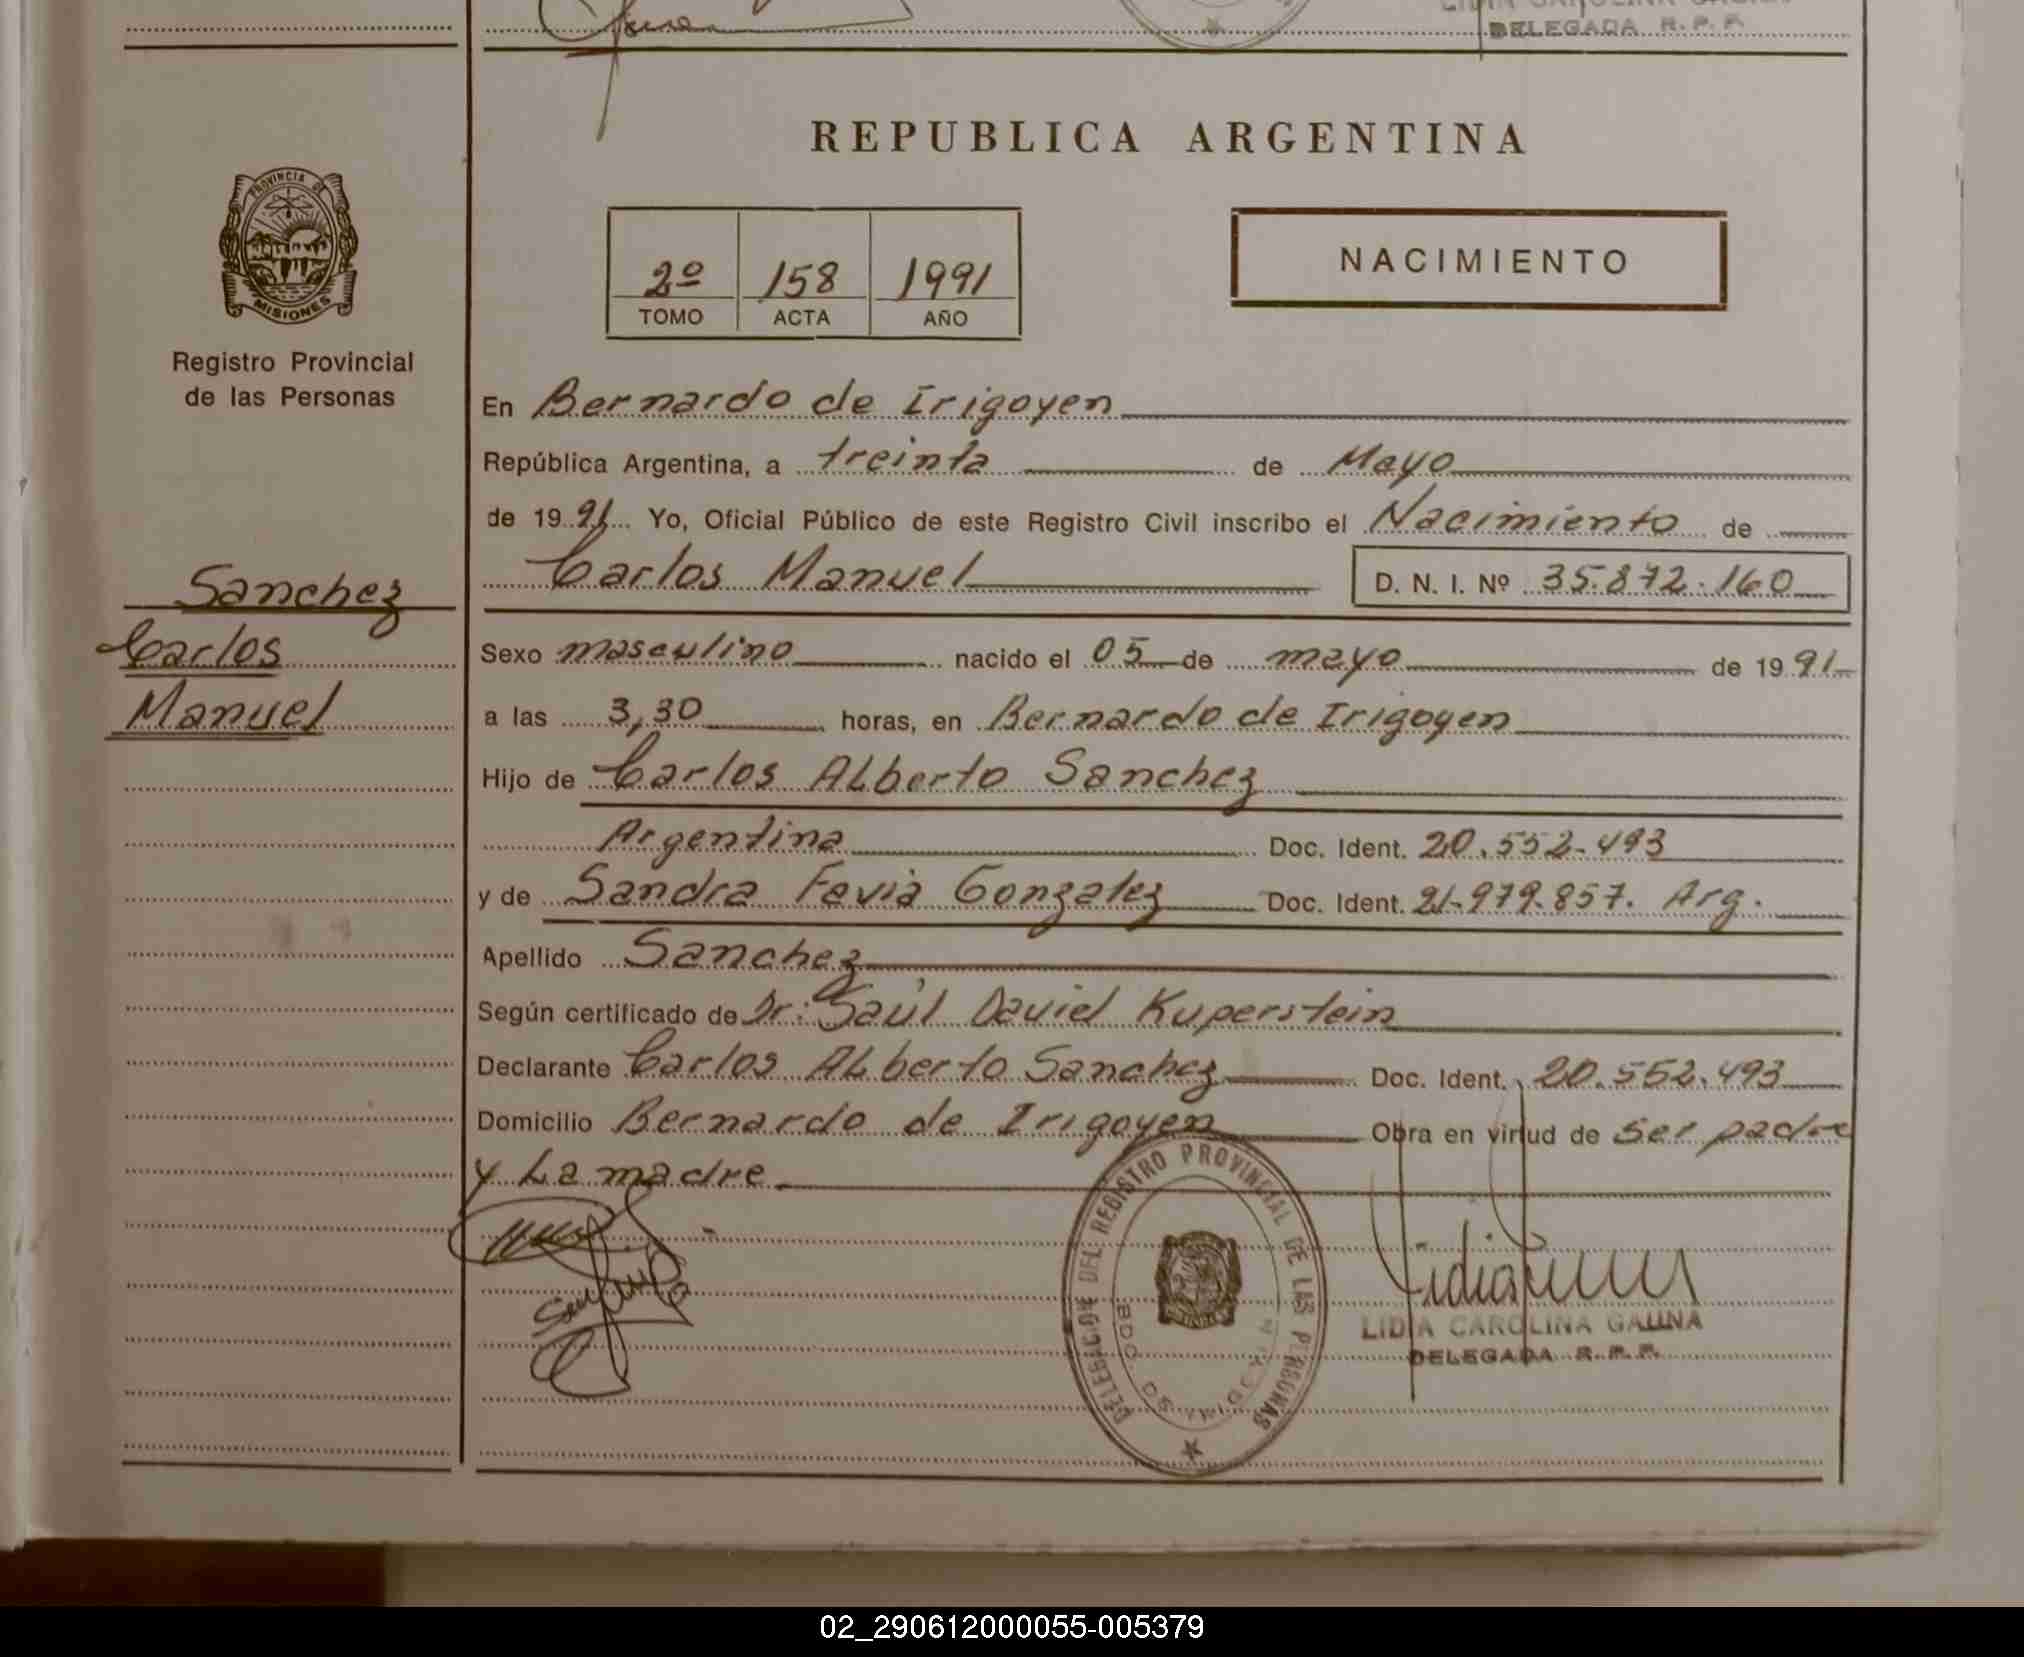 DELEGADA R. P. P.
REPUBLICA ARGENTINA
PROVINCIA DE
MISIONES
Registro Provincial
de las Personas
2º 158 1991
TOMO ACTA AÑO
NACIMIENTO
En Bernardo de Irigoyen
República Argentina, a treinta de Mayo
de 1991 Yo, Oficial Público de este Registro Civil inscribo el Nacimiento de
Carlos Manuel D. N. I. Nº 35.872.160
Sanchez
Carlos
Manuel
Sexo masculino nacido el 05 de mayo de 1991
a las 3,30 horas, en Bernardo de Irigoyen
Hijo de Carlos ALberto Sanchez
Argentina Doc. Ident. 20.552.493
y de Sandra Favia Gonzalez Doc. Ident. 21.979.857. Arg.
Apellido Sanchez
Según certificado de Dr: Saúl David Kuperstein
Declarante Carlos ALberto Sanchez Doc. Ident. 20.552.493
Domicilio Bernardo de Irigoyen Obra en virtud de ser padre
y La madre
DELEGACION DEL REGISTRO PROVINCIAL DE LAS PERSONAS
BDO. DE IRIGOYEN
LIDIA CAROLINA GAUNA
DELEGADA R. P. P.
02_290612000055-005379